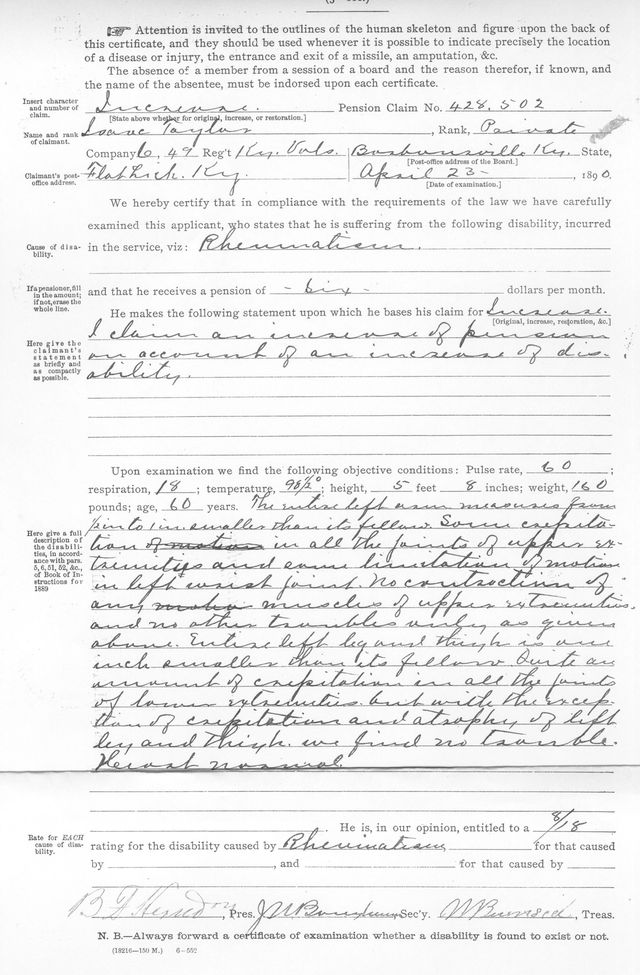 ☞ Attention is invited to the outlines of the human skeleton and figure upon the back of
this certificate, and they should be used whenever it is possible to indicate precisely the location
of a disease or injury, the entrance and exit of a missile, an amputation, &c.
The absence of a member from a session of a board and the reason therefor, if known, and
the name of the absentee, must be indorsed upon each certificate.
Insert character and number of claim.
Increase. Pension Claim No. 428,502
[State above whether for original, increase, or restoration.]
Name and rank of claimant.
Isaac Taylor, Rank, Private
Company C, 49 Reg't Ky. Vols. Barbourville Ky. State,
[Post-office address of the Board.]
Claimant's post-office address.
Flat Lick. Ky. April 23, 1890.
[Date of examination.]
We hereby certify that in compliance with the requirements of the law we have carefully
examined this applicant, who states that he is suffering from the following disability, incurred
Cause of disability.
in the service, viz: Rheumatism.
If a pensioner, fill in the amount; if not, erase the whole line.
and that he receives a pension of - six - dollars per month.
He makes the following statement upon which he bases his claim for Increase.
[Original, increase, restoration, &c.]
Here give the claimant's statement as briefly and as compactly as possible.
I claim an increase of pension
on account of an increase of dis-
ability.
Upon examination we find the following objective conditions: Pulse rate, 60;
respiration, 18; temperature, 98½°; height, 5 feet 8 inches; weight, 160
pounds; age, 60 years. The entire left arm measures from
½ in to 1 in smaller than its fellow. Some crepita-
Here give a full description of the disabilities, in accordance with pars. 5, 6, 51, 52, &c., of Book of Instructions for 1889
tion of motion in all the joints of upper ex-
tremities and some limitation of motion
in left wrist joint. No contraction of
any muscles of upper extremities,
and no other troubles only as given
above. Entire left leg and thigh is one
inch smaller than its fellow. Quite an
amount of crepitation in all the joints
of lower extremities but with the excep-
tion of crepitation and atrophy of left
leg and thigh. we find no trouble.
Heart normal.
He is, in our opinion, entitled to a 8/18
Rate for EACH cause of disability.
rating for the disability caused by Rheumatism for that caused
by , and for that caused by
B F Herndon, Pres. Sec'y. Treas.
N. B.—Always forward a certificate of examination whether a disability is found to exist or not.
(18216—150 M.) 6-552